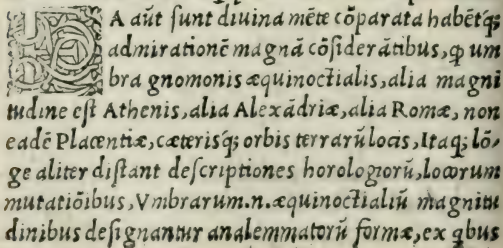 EA aūt sunt diuina mēte cōparata habēt'q;
admirationē magnā cōsiderātibus, ꝙ um
bra gnomonis æquinoctialis, alia magni
tudine est Athenis, alia Alexādriæ, alia Romæ, non
eadē Placentiæ, cæteris'q; orbis terrarū locis, Itaq; lō-
ge aliter distant descriptiones horologiorū, locorum
mutatiōibus, Vmbrarum.n.æquinoctialiū magnitu
dinibus designantur analemmatorū formæ, ex qbus